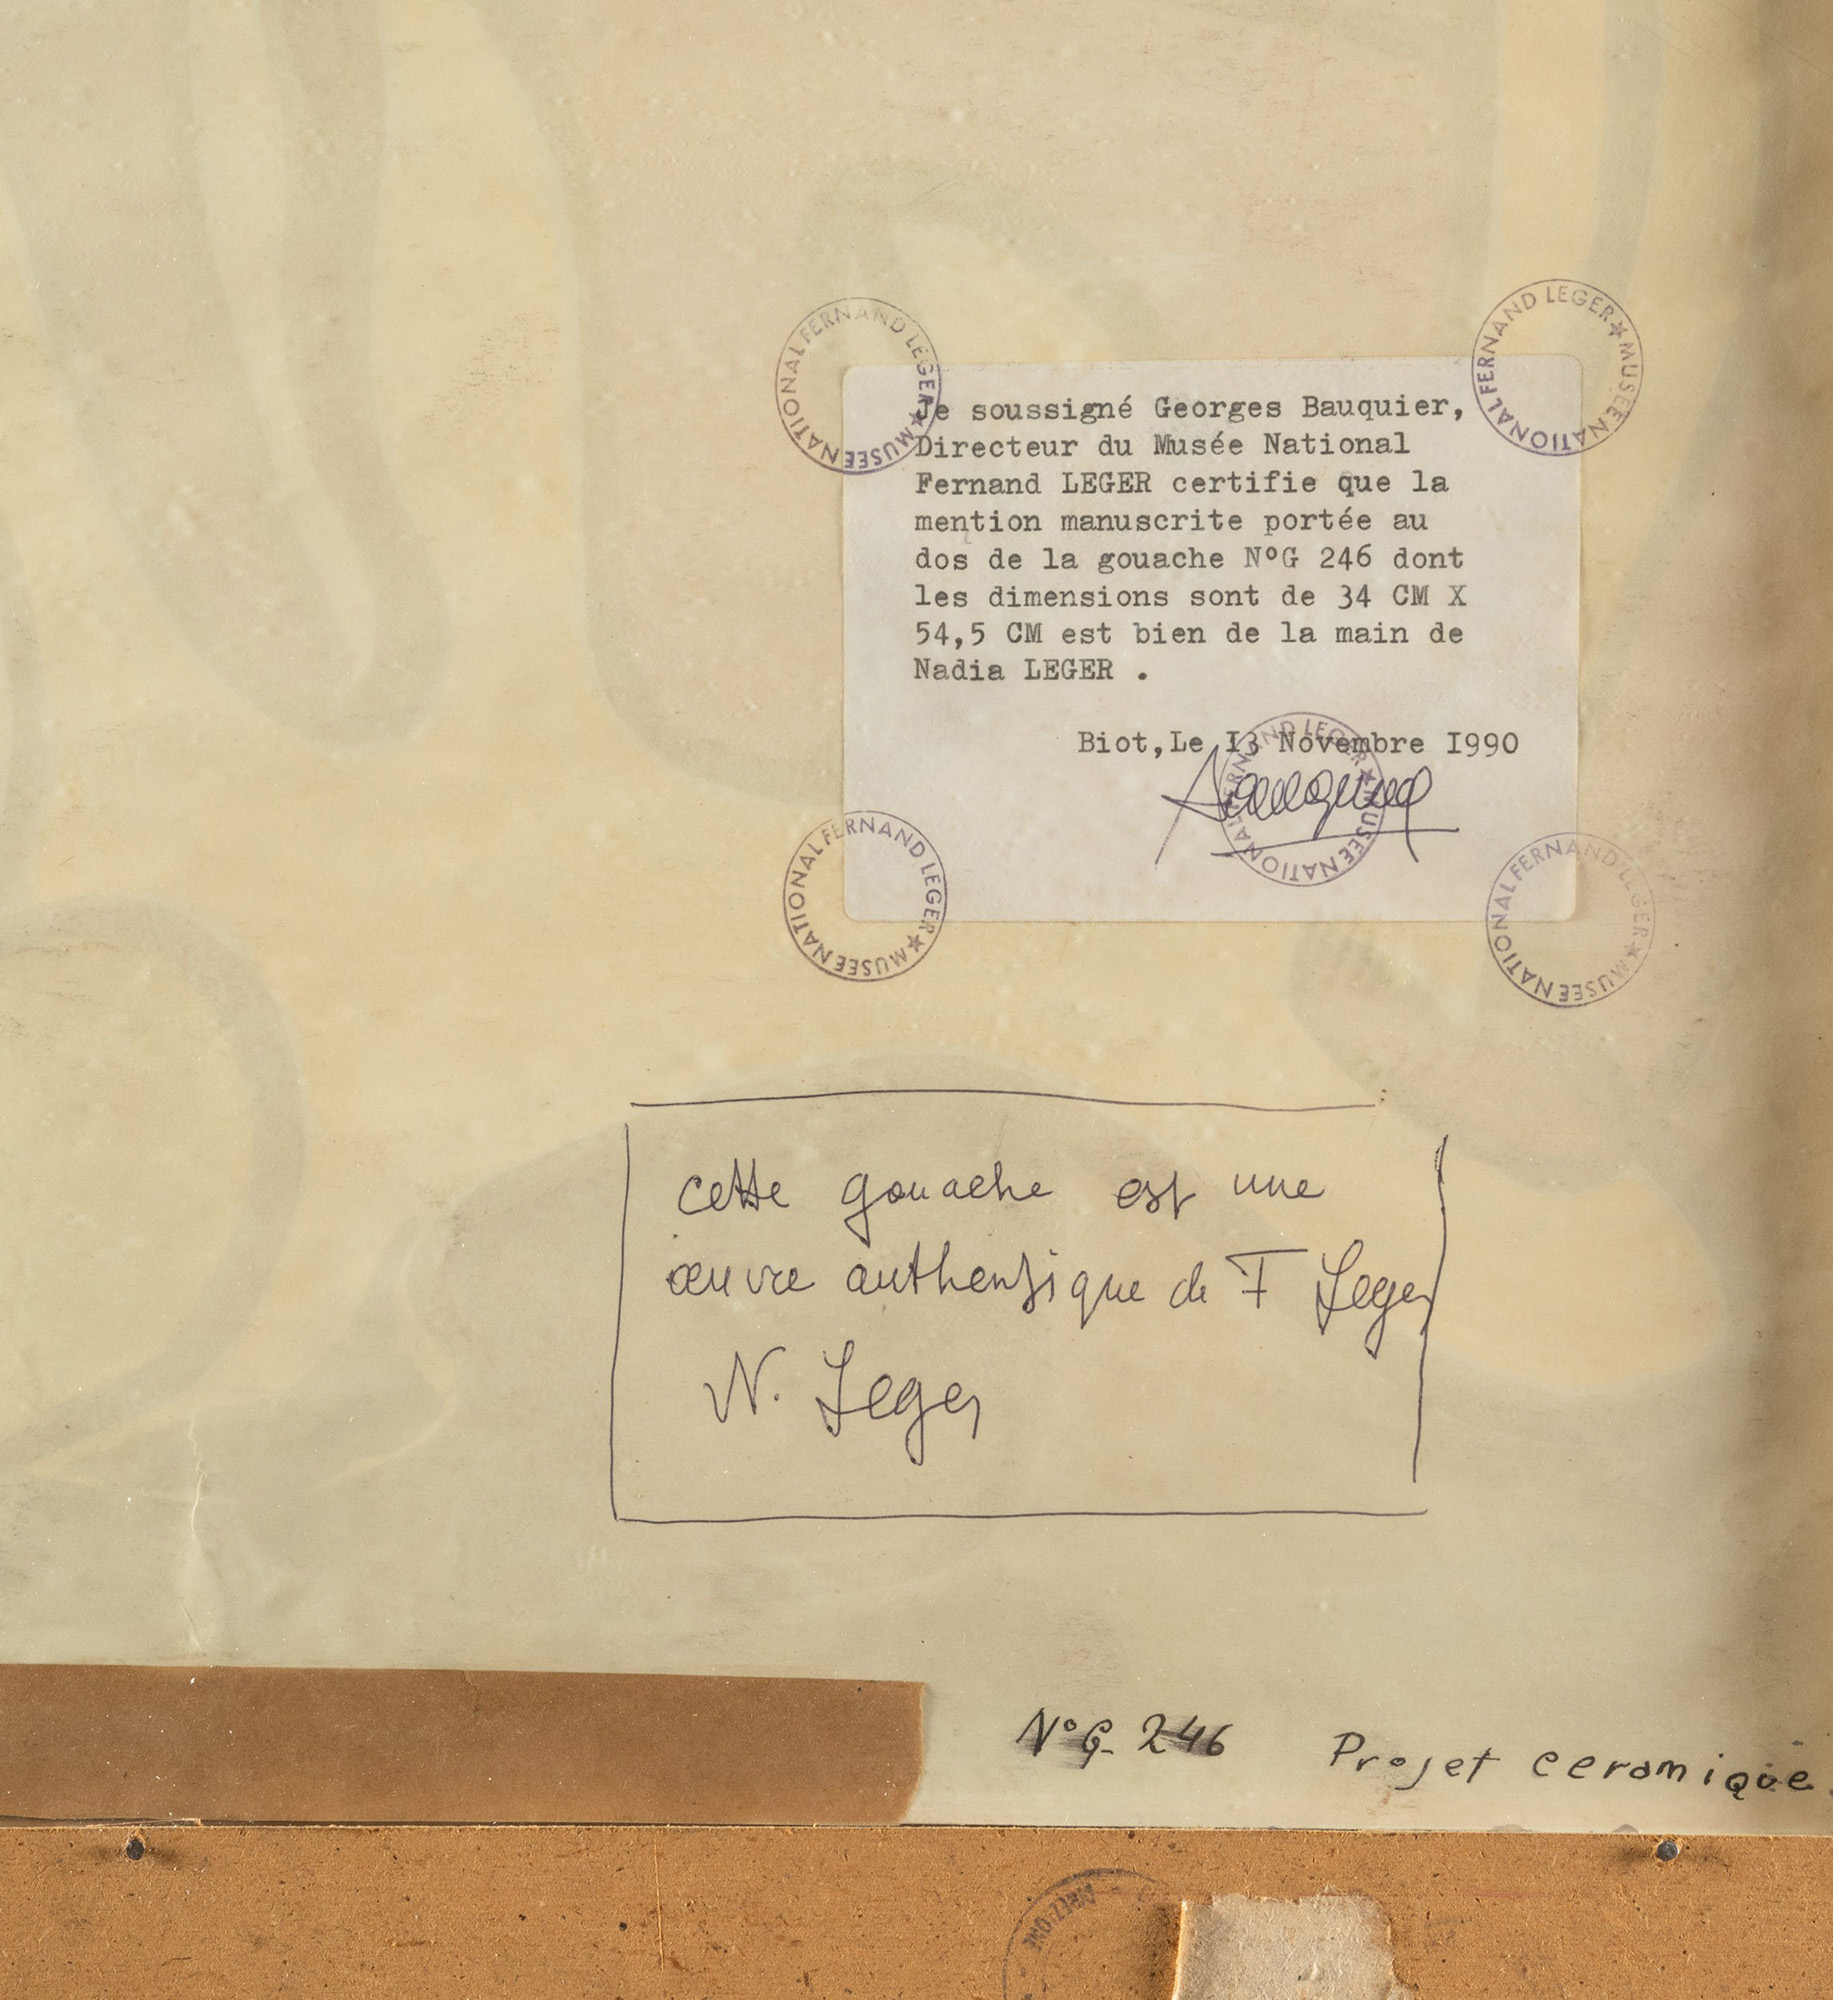 Je soussigné Georges Bauquier,
Directeur du Musée National
Fernand LEGER certifie que la
mention manuscrite portée au
dos de la gouache N°G 246 dont
les dimensions sont de 34 CM X
54,5 CM est bien de la main de
Nadia LEGER .
Biot,Le I3 Novembre I990
MUSEE NATIONAL FERNAND LEGER ★
MUSEE NATIONAL FERNAND LEGER ★
MUSEE NATIONAL FERNAND LEGER ★
MUSEE NATIONAL FERNAND LEGER ★
MUSEE NATIONAL FERNAND LEGER ★
cette gouache est une
œuvre authentique de F Leger
N. Leger
N°G 246 Projet ceramique